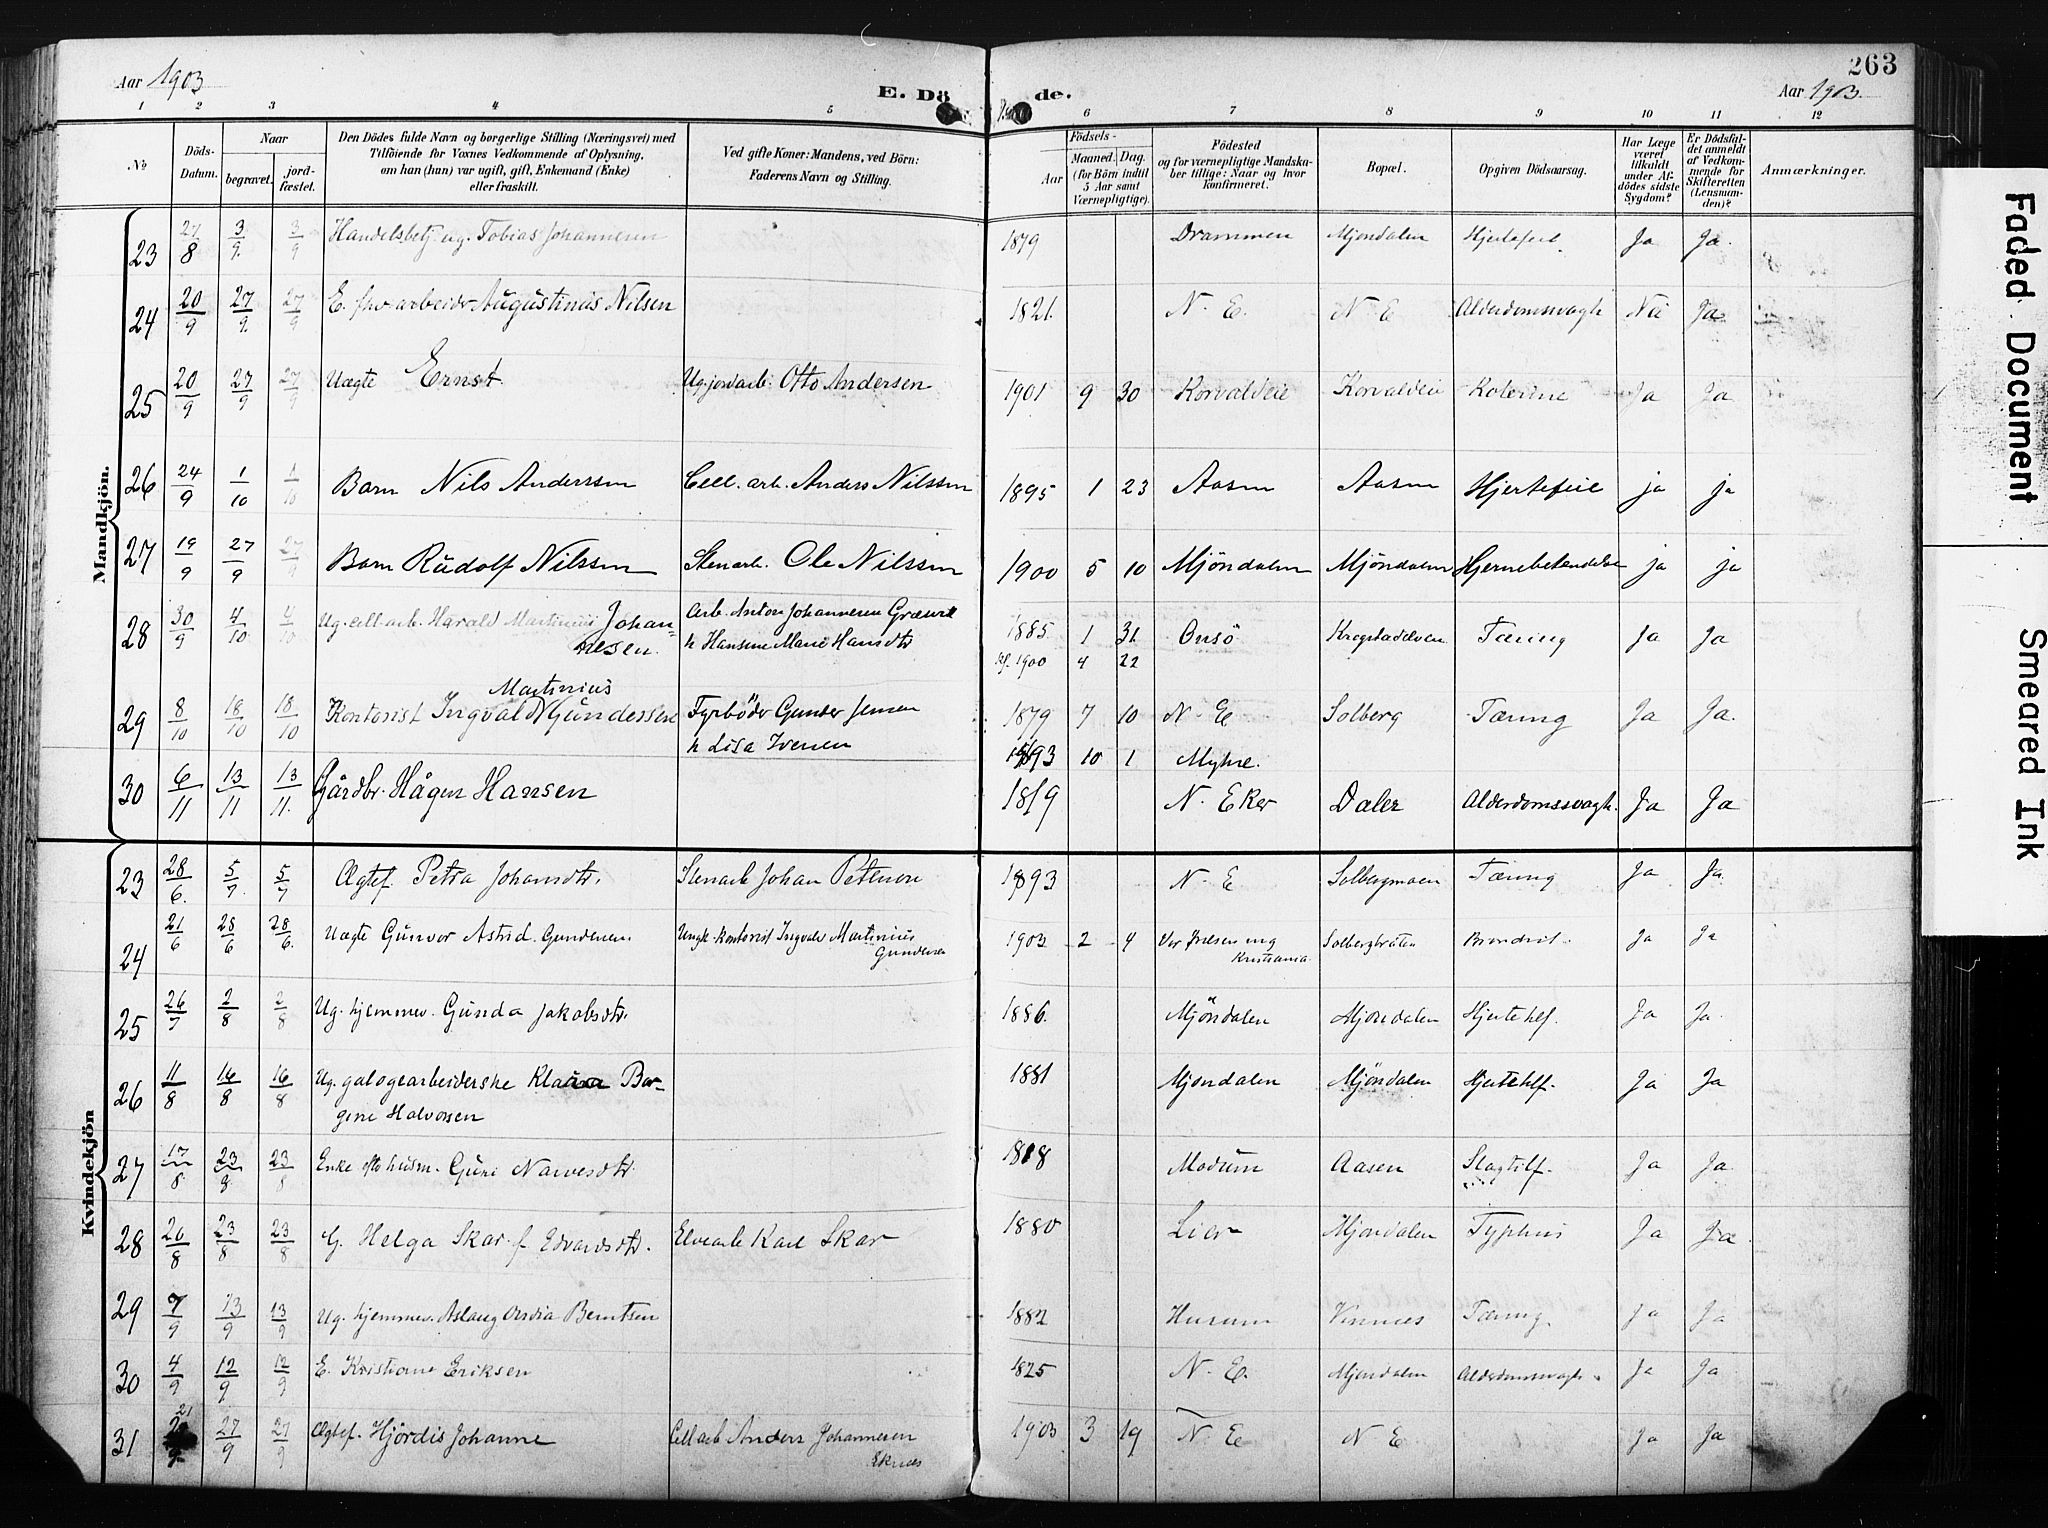 263
Aar 1903
E. Dö
de.
Aar 1903.
1 2 3 4 5 6 7 8 9 10 11 12
No
Döds-Datum.
Naar
begravet.
jord-fæstet.
Den Dödes fulde Navn og borgerlige Stilling (Næringsvei) med
Tilföiende for Voxnes Vedkommende af Oplysning,
om han (hun) var ugift, gift, Enkemand (Enke)
eller fraskilt.
Ved gifte Koner: Mandens, ved Börn:
Faderens Navn og Stilling.
Födsels-
Aar
Maaned. Dag.
(for Börn indtil
5 Aar samt
Værnepligtige).
Födested
og for værnepligtige Mandska-
ber tillige: Naar og hvor
konfirmeret.
Bopæl.
Opgiven Dödsaarsag.
Har Læge
været
tilkaldt
under Af-
dödes sidste
Sygdom?
Er Dödsfal-
det anmeldt
af Vedkom-
mende for
Skifteretten
(Lensman-
den)?
Anmærkninger.
Mandkjön.
23 27/8 3/9 3/9 Handelsbetj. ug. Tobias Johannesen 1879 Drammen Mjøndalen Hjertefeil Ja Ja.
24 20/9 27/9 27/9 E. fhv arbeidr Augustinus Nilsen 1821. N. E. N. E Alderdomssvagh Nei Ja
25 20/9 27/9 27/9 Uægte Ernst Ug. jordarb. Otto Andersen 1901 9 30 Korvaldeie Korvaldeie Kolerine Ja Ja
26 24/9 1/10 1/10 Barn Nils Anderssen Cell. arb. Anders Nilssen 1895 1 23 Aasen Aasen Hjertefeil ja ja
27 19/9 27/9 27/9 Barn Rudolf Nilssen Stenarb. Ole Nilssen 1900 5 10 Mjöndalen Mjöndalen Hjernebetendelse ja ja
28 30/9 4/10 4/10 Ug. cell. arb. Harald Martinius Johan- Arb. Anton Johannesen 1885 1 31 Onsö Krogstadelven Tæring Ja Ja
nesen. h Hansine Marie Hansdtr 1900 4 22
Martinius
29 8/10 18/10 18/10 Kontorist Ingvald Gundersen Fyrböder Gunder Jensen 1879 7 10 N. E Solberg Tæring Ja Ja.
h Lisa Iversen 1893 10 1 Myhre.
30 6/11 13/11 13/11. Gårdbr. Hågen Hansen 1819 N. Eker Daler Alderdomssvagh. Ja Ja
Kvindekjön
23 28/6. 5/7. 5/7 Ægtef. Petra Johansdtr. Stenarb Johan Petersen 1893 N. E Solbergmoen Tæring Ja Ja
24 21/6 28/6 28/6. Uægte Gunvor Astrid Gundersen Ungk. kontorist Ingvald Martinius 1902 2 4 Kristiania. Solbergbråten Ja Ja
Gundersen
25 26/7 2/8 2/8 Ug. hjemmev. Gunda Jakobsdtr. 1886. Mjöndalen Mjöndalen Hjertehlf. Ja Ja.
26 11/8 16/8 16/8 Ug. galogearbeiderske Klara Bor- 1881 Mjöndalen Mjöndalen Hjertehlf. Ja Ja
gine Halvorsen
27 17/8. 23/8 23/8 Enke efte husm. Guri Narvesdtr. 1818 Modum Aasen Slagtilf. Ja Ja.
28 20/8 23/8 23/8 G. Helga Skar f. Edvardsdtr. Elvearb Karl Skar 1880 Lier Mjöndalen Typhus Ja Ja
29 7/9 13/9 13/9 Ug. hjemmev. Aslaug Berntsen 1882 Hurum Vinnæs Tæring. Ja Ja
30 4/9 12/9 12/9 E. Kristiane Eriksen 1825 N. E. Mjöndalen Alderdomssvagh. Ja Ja
31 21/9 27/9 27/9 Ægtef. Hjördis Johanne Cellarb Anders Johannesen 1903 3 19 N. E N E Ja Ja
Eknæs
Faded Document
Smeared Ink